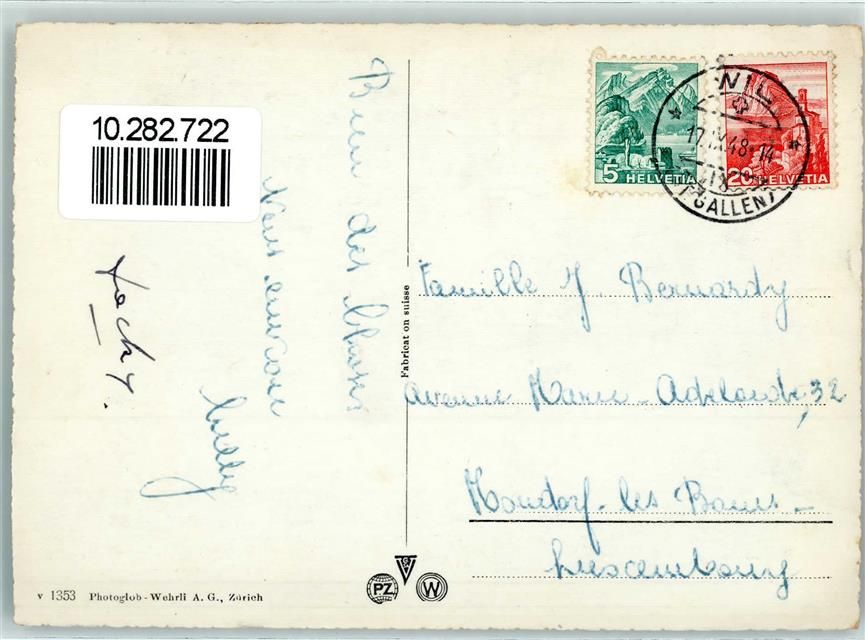 10.282.722
Bien des choses
Votre
Willy
Jacky.
v 1353 Photoglob-Wehrli A. G., Zürich
Fabricat on suisse
PZ
W
5 HELVETIA
20 HELVETIA
WIL
17.IX.48-14
GALLEN)
Famille J. Bernardy
Avenue Marie-Adelaide, 32
Mondorf-les Bains-
Luxembourg